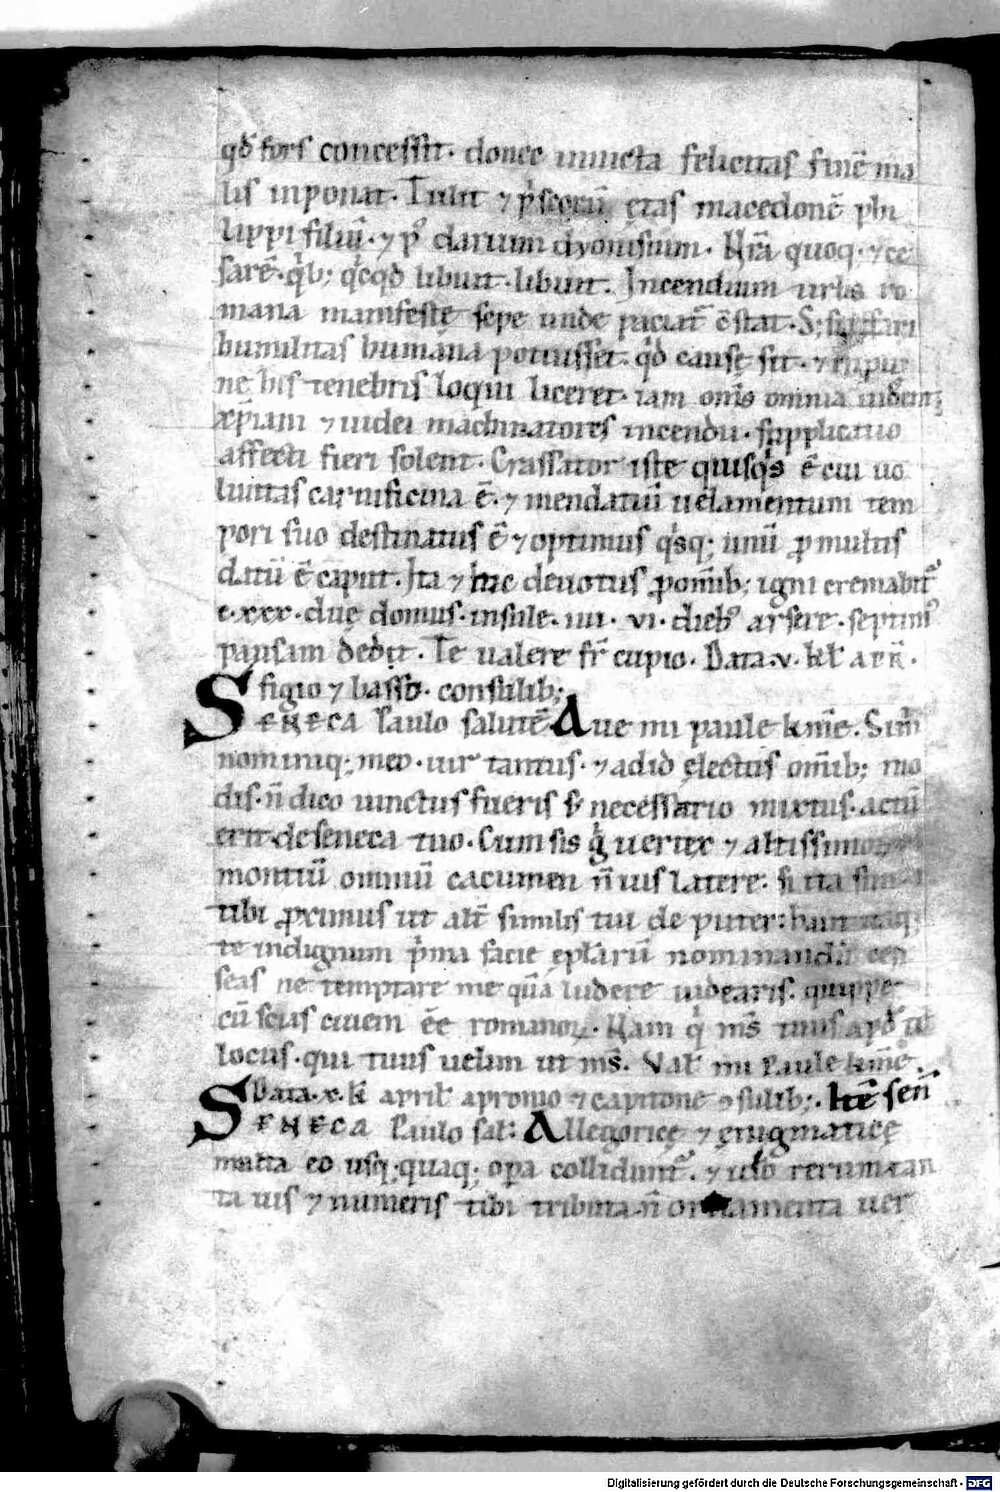 qd̄ fors concessit. donec inuicta felicitas finē ma
lis inponat. Tulit ⁊ p'scorū ętas macedonē phi
lippi filiū. ⁊ p' darium dyonisium. Nrā quoq; ⁊ ce
sarē. q'b; q'cqd libuit. libuit. Incendium urbis ro
mana manifeste sepe unde paciat̄ c̄stat. S;
humilitas humana potuisset. q'd cause sit. ⁊ inpu
ne his tenebris loqui liceret. iam om̄s omnia uiderent
xp̄iani ⁊ iudei machinatores incendii. supplicio
affecti fieri solent. Crassator iste quisq's ē cui uo
luptas carnificina ē. ⁊ mendatiū uelamentum tem
pori suo destinatus ē ⁊ optimus q'sq; unū p multis
datū ē caput. Ita ⁊ hic deuotus p om̄ib; igni cremabit̄
c.xxx. due domus. insule. iiii. vi. dieb; arsere. septim'
pausam dedit. Te ualere fr̄ cupio. Data.v. kł apr̄.
figio ⁊ basso. consulib;
SENECA Paulo salutē. Aue mi paule km̄e. Sim̄
nominiq; meo. uir tantus. ⁊ ad id electus om̄ib; mo
dis. n̄ dico iunctus fueris s; necessario mixtus. actū
erit. de seneca tuo. Cum sis g' uertex ⁊ altissimo
montiū omniū cacumen n̄ uis latere. si ita sim
tibi proximus ut alt̄ similis tui deputer: haut itaq;
te indignum p'ma facie eplarū nominandū cen
seas ne temptare me quā ludere uidearis. quippe
cū scias ciuem ēe romanoꝝ. Nam q' ms̄ tuus apd̄ te
locus. qui tuus uelim ut ms̄. Vał mi Paule km̄e.
Data.x.k̄ april apronio ⁊ capitone ↄsulib;. Itē sen̄
SENECA Paulo sal: Allegorice ⁊ enigmatice
multa eo usq; quaq; op̄a collidunt̄. ⁊ rerum tan
ta uis ⁊ numeris tibi tributa n̄ ornamenta uer
Digitalisierung gefördert durch die Deutsche Forschungsgemeinschaft - DFG